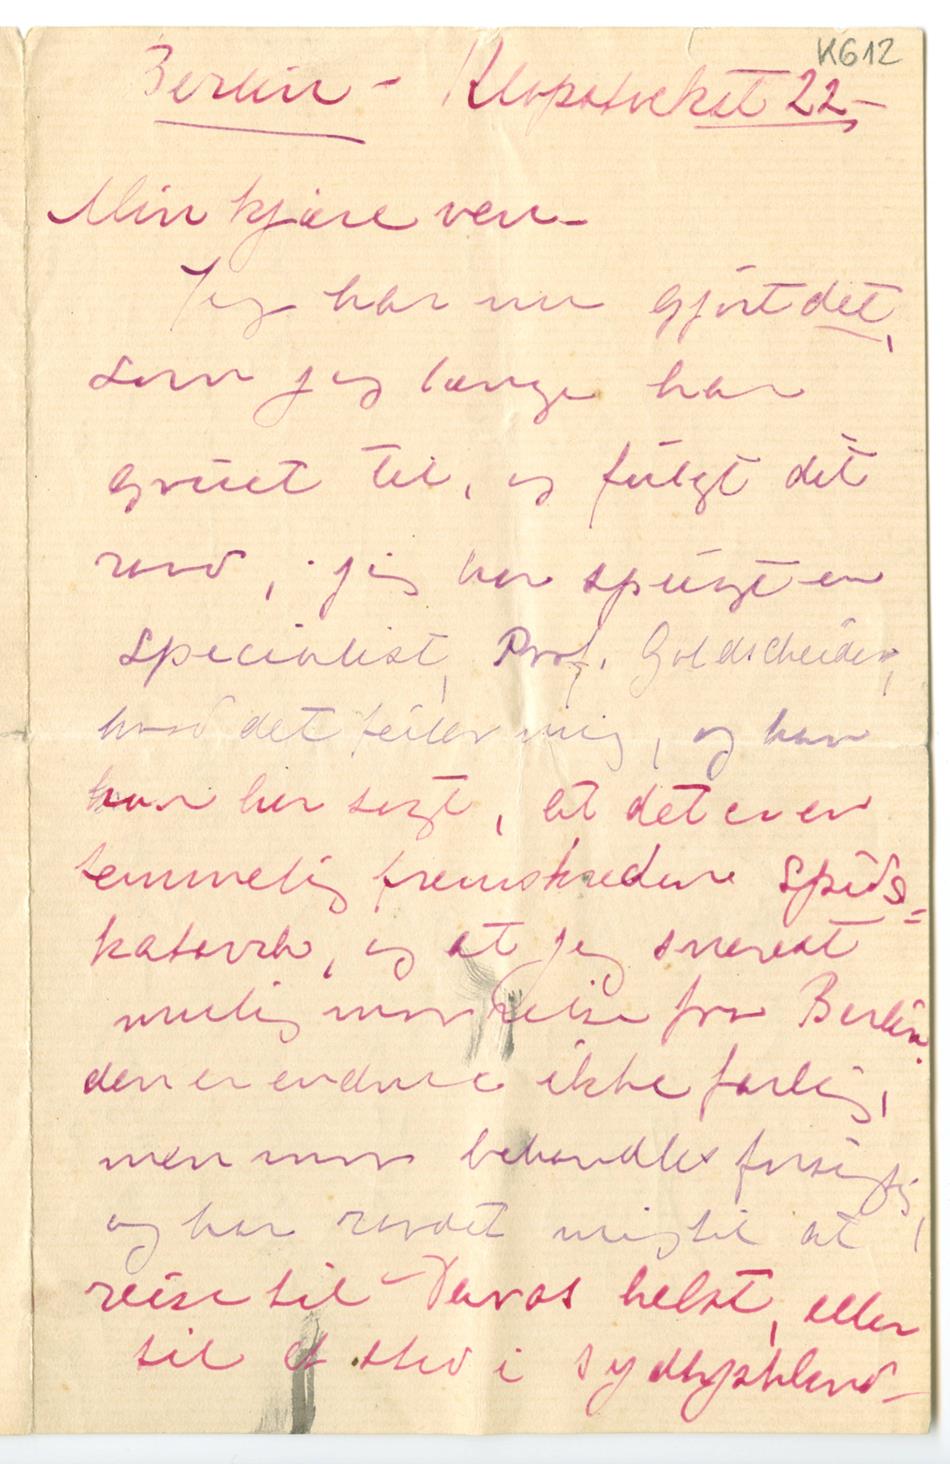 K612
Berlin - Klopstockst 22-
Min kjære ven-
Jeg har nu gjort det,
som jeg længe har
gruet til, og fulgt dit
raad, jeg har spurgt en
specialist, Prof. Goldscheider,
hvad det feiler mig, og han
har her sagt, at det er en
temmelig fremskreden spids=
katarrh, og at jeg snarest
mulig maa reise fra Berlin.
den er endnu ikke farlig,
men maa behandles forsigtig,
og har raadet mig til at
reise til Davos helst, eller
til et sted i Sydtyskland-